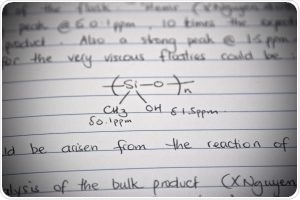 of the flask "Items (XNguyen
peak @ δ0.1ppm, 10 times the expect
product. Also a strong peak @ 1.5 ppm
for the very viscous fluids could be
( Si — O )n
CH3 OH δ1.5ppm
δ0.1ppm
ld be arisen from the reaction of
alysis of the bulk product (XNguyen